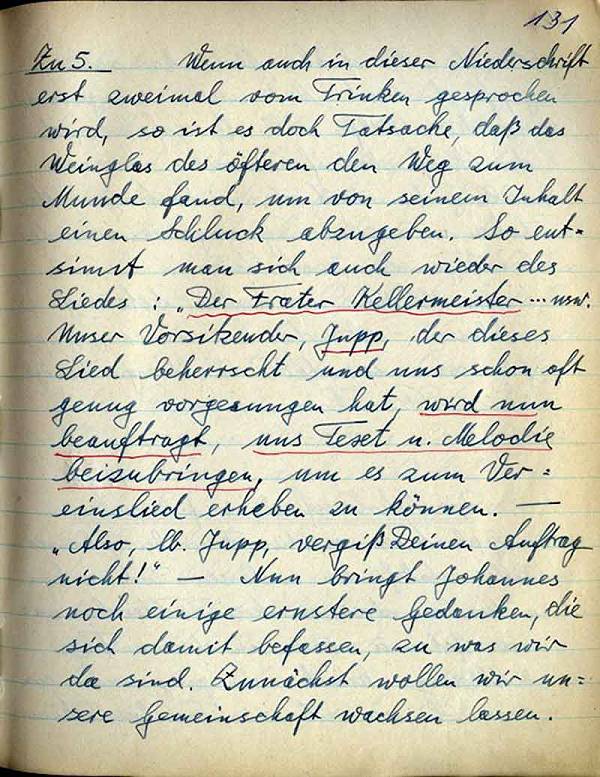 131
Zu 5. Wenn auch in dieser Niederschrift
erst zweimal vom Trinken gesprochen
wird, so ist es doch Tatsache, daß das
Weinglas des öfteren den Weg zum
Munde fand, um von seinem Inhalt
einen Schluck abzugeben. So ent=
sinnt man sich auch wieder des
Liedes: „Der Frater Kellermeister... usw.
Unser Vorsitzender, Jupp, der dieses
Lied beherrscht und uns schon oft
genug vorgesungen hat, wird nun
beauftragt, uns Text u. Melodie
beizubringen, um es zum Ver=
einslied erheben zu können. —
„Also, lb. Jupp, vergiß Deinen Auftrag
nicht!" — Nun bringt Johannes
noch einige ernstere Gedanken, die
sich damit befassen, zu was wir
da sind. Zunächst wollen wir un=
sere Gemeinschaft wachsen lassen.